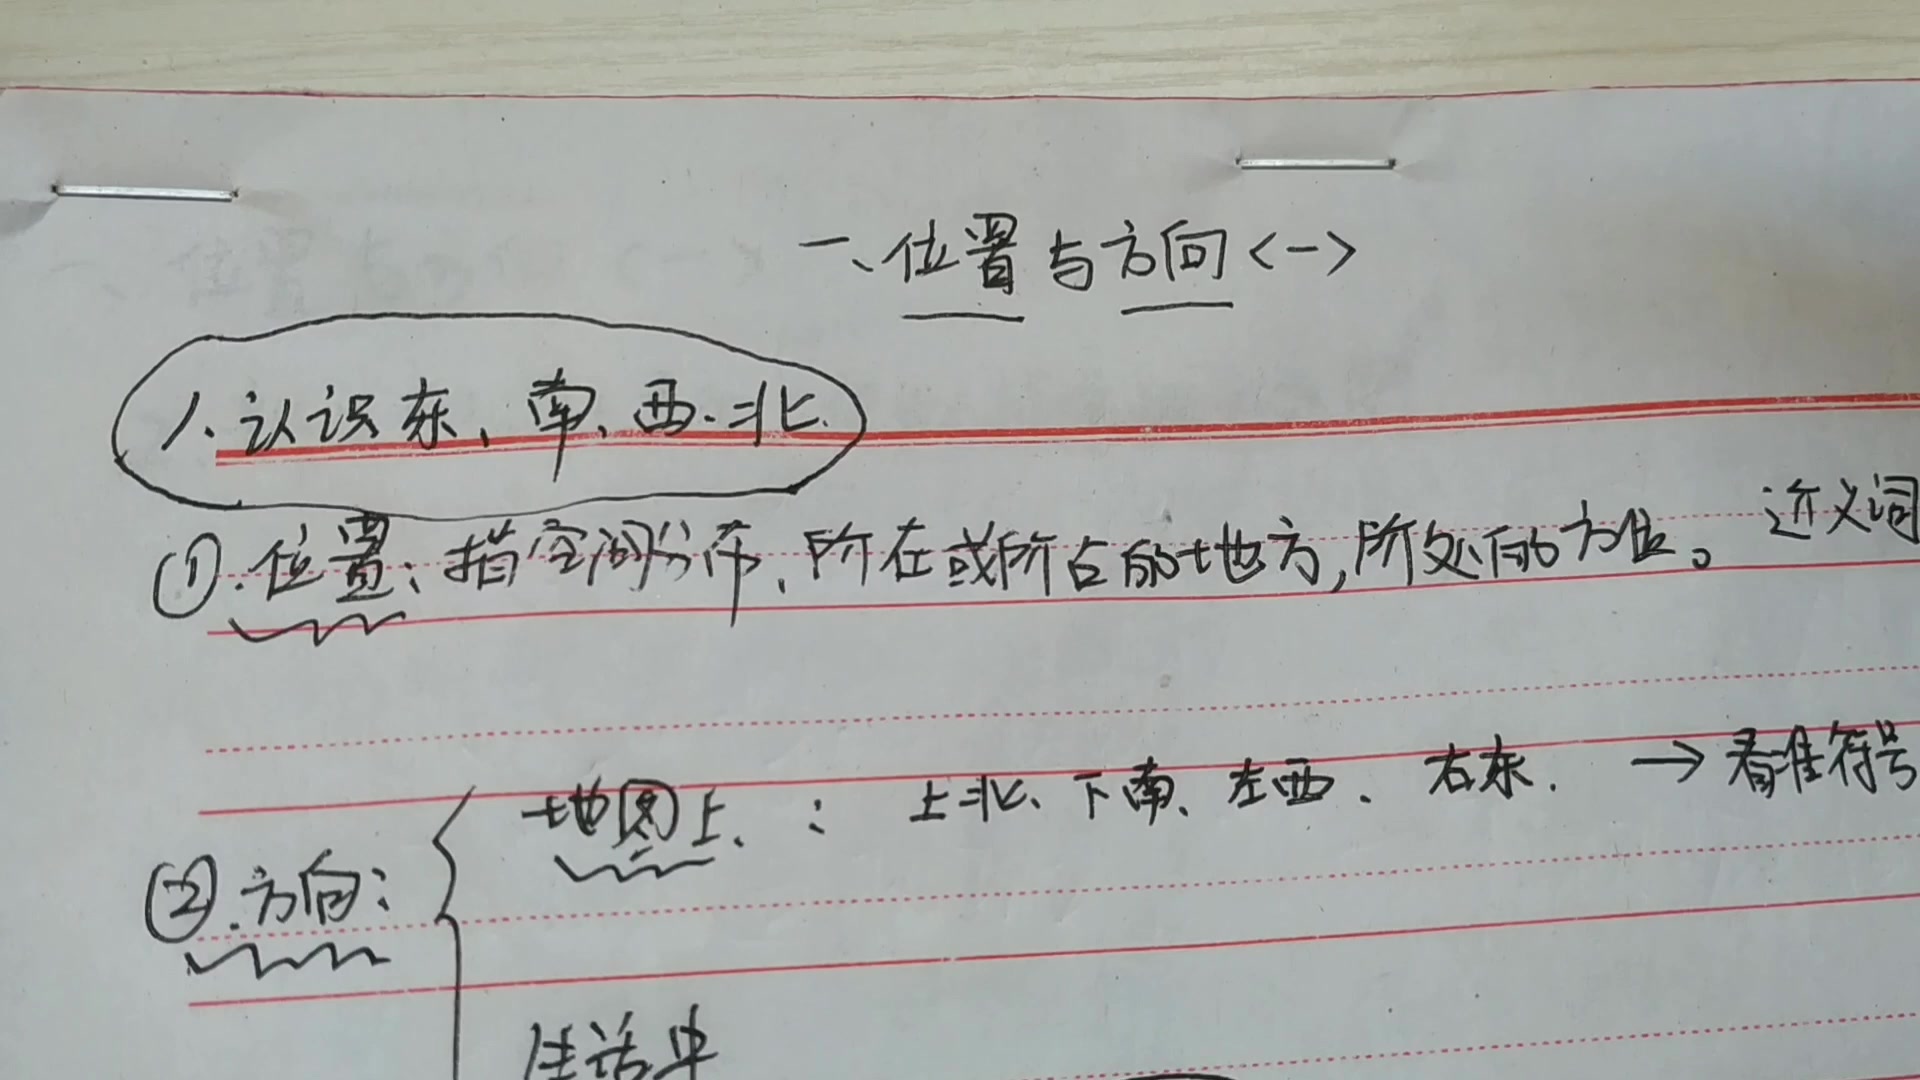 一、位置与方向<一>
1.认识东、南、西、北.
①.位置：指空间分布，所在或所占的地方,所处的方位。近义词
地图上、： 上北、下南、左西、右东. → 看准符号
②.方向：
生活中